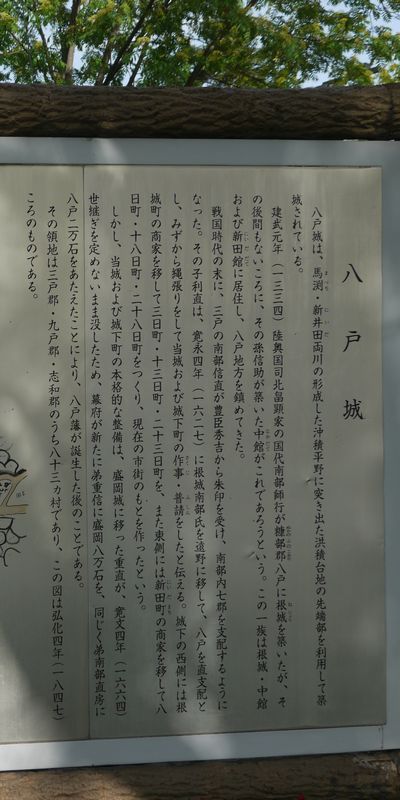 八戸城
八戸城は、馬渕・新井田両川の形成した沖積平野に突き出た洪積台地の先端部を利用して築
城されている。
建武元年（一三三四）陸奥国司北畠顕家の国代南部師行が糠部郡八戸に根城を築いたが、そ
の後間もないころに、その孫信助が築いた中館がこれであろうという。この一族は根城・中館
および新田館に居住し、八戸地方を鎮めてきた。
戦国時代の末に、三戸の南部信直が豊臣秀吉から朱印を受け、南部内七郡を支配するように
なった。その子利直は、寛永四年（一六二七）に根城南部氏を遠野に移して、八戸を直支配と
し、みずから縄張りをして当城および城下町の作事・普請をしたと伝える。城下の西側には根
城町の商家を移して三日町・十三日町・二十三日町を、また東側には新田町の商家を移して八
日町・十八日町・二十八日町をつくり、現在の市街のもとを作ったという。
しかし、当城および城下町の本格的な整備は、盛岡城に移った重直が、寛文四年（一六六四）
世継ぎを定めないまま没したため、幕府が新たに弟重信に盛岡八万石を、同じく弟南部直房に
八戸二万石をあたえたことにより、八戸藩が誕生した後のことである。
その領地は三戸郡・九戸郡・志和郡のうち八十三カ村であり、この図は弘化四年（一八四七）
ころのものである。